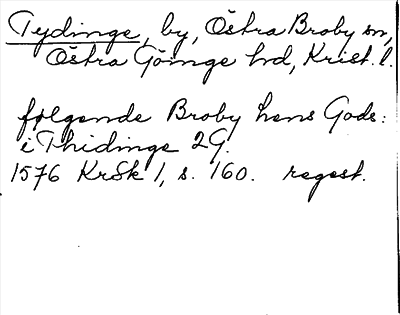 Tydinge, by, Östra Broby sn,
Östra Göinge hd, Krist. l.
følgende Broby hens Gods:
i Thidinge 2 G.
1576 KrSk 1, s. 160. regest.